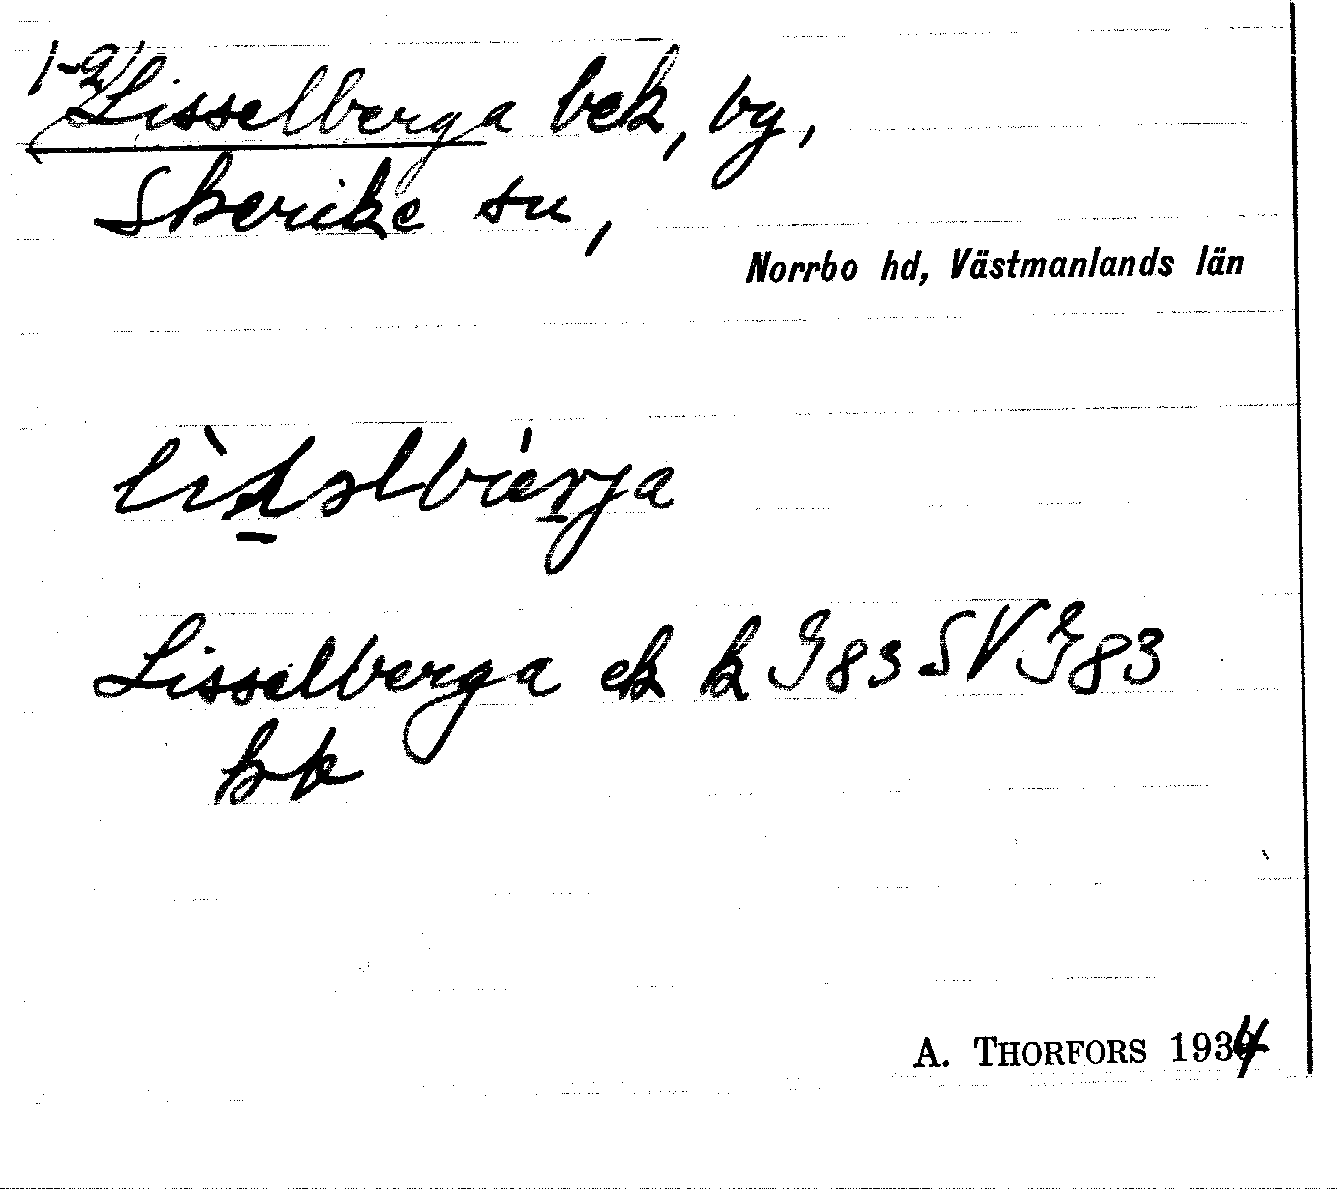 Lisselberga bek, by,
Skerike sn,
Norrbo hd, Västmanlands län
Lisselberga ek k G83 SV G83
A. THORFORS 1934